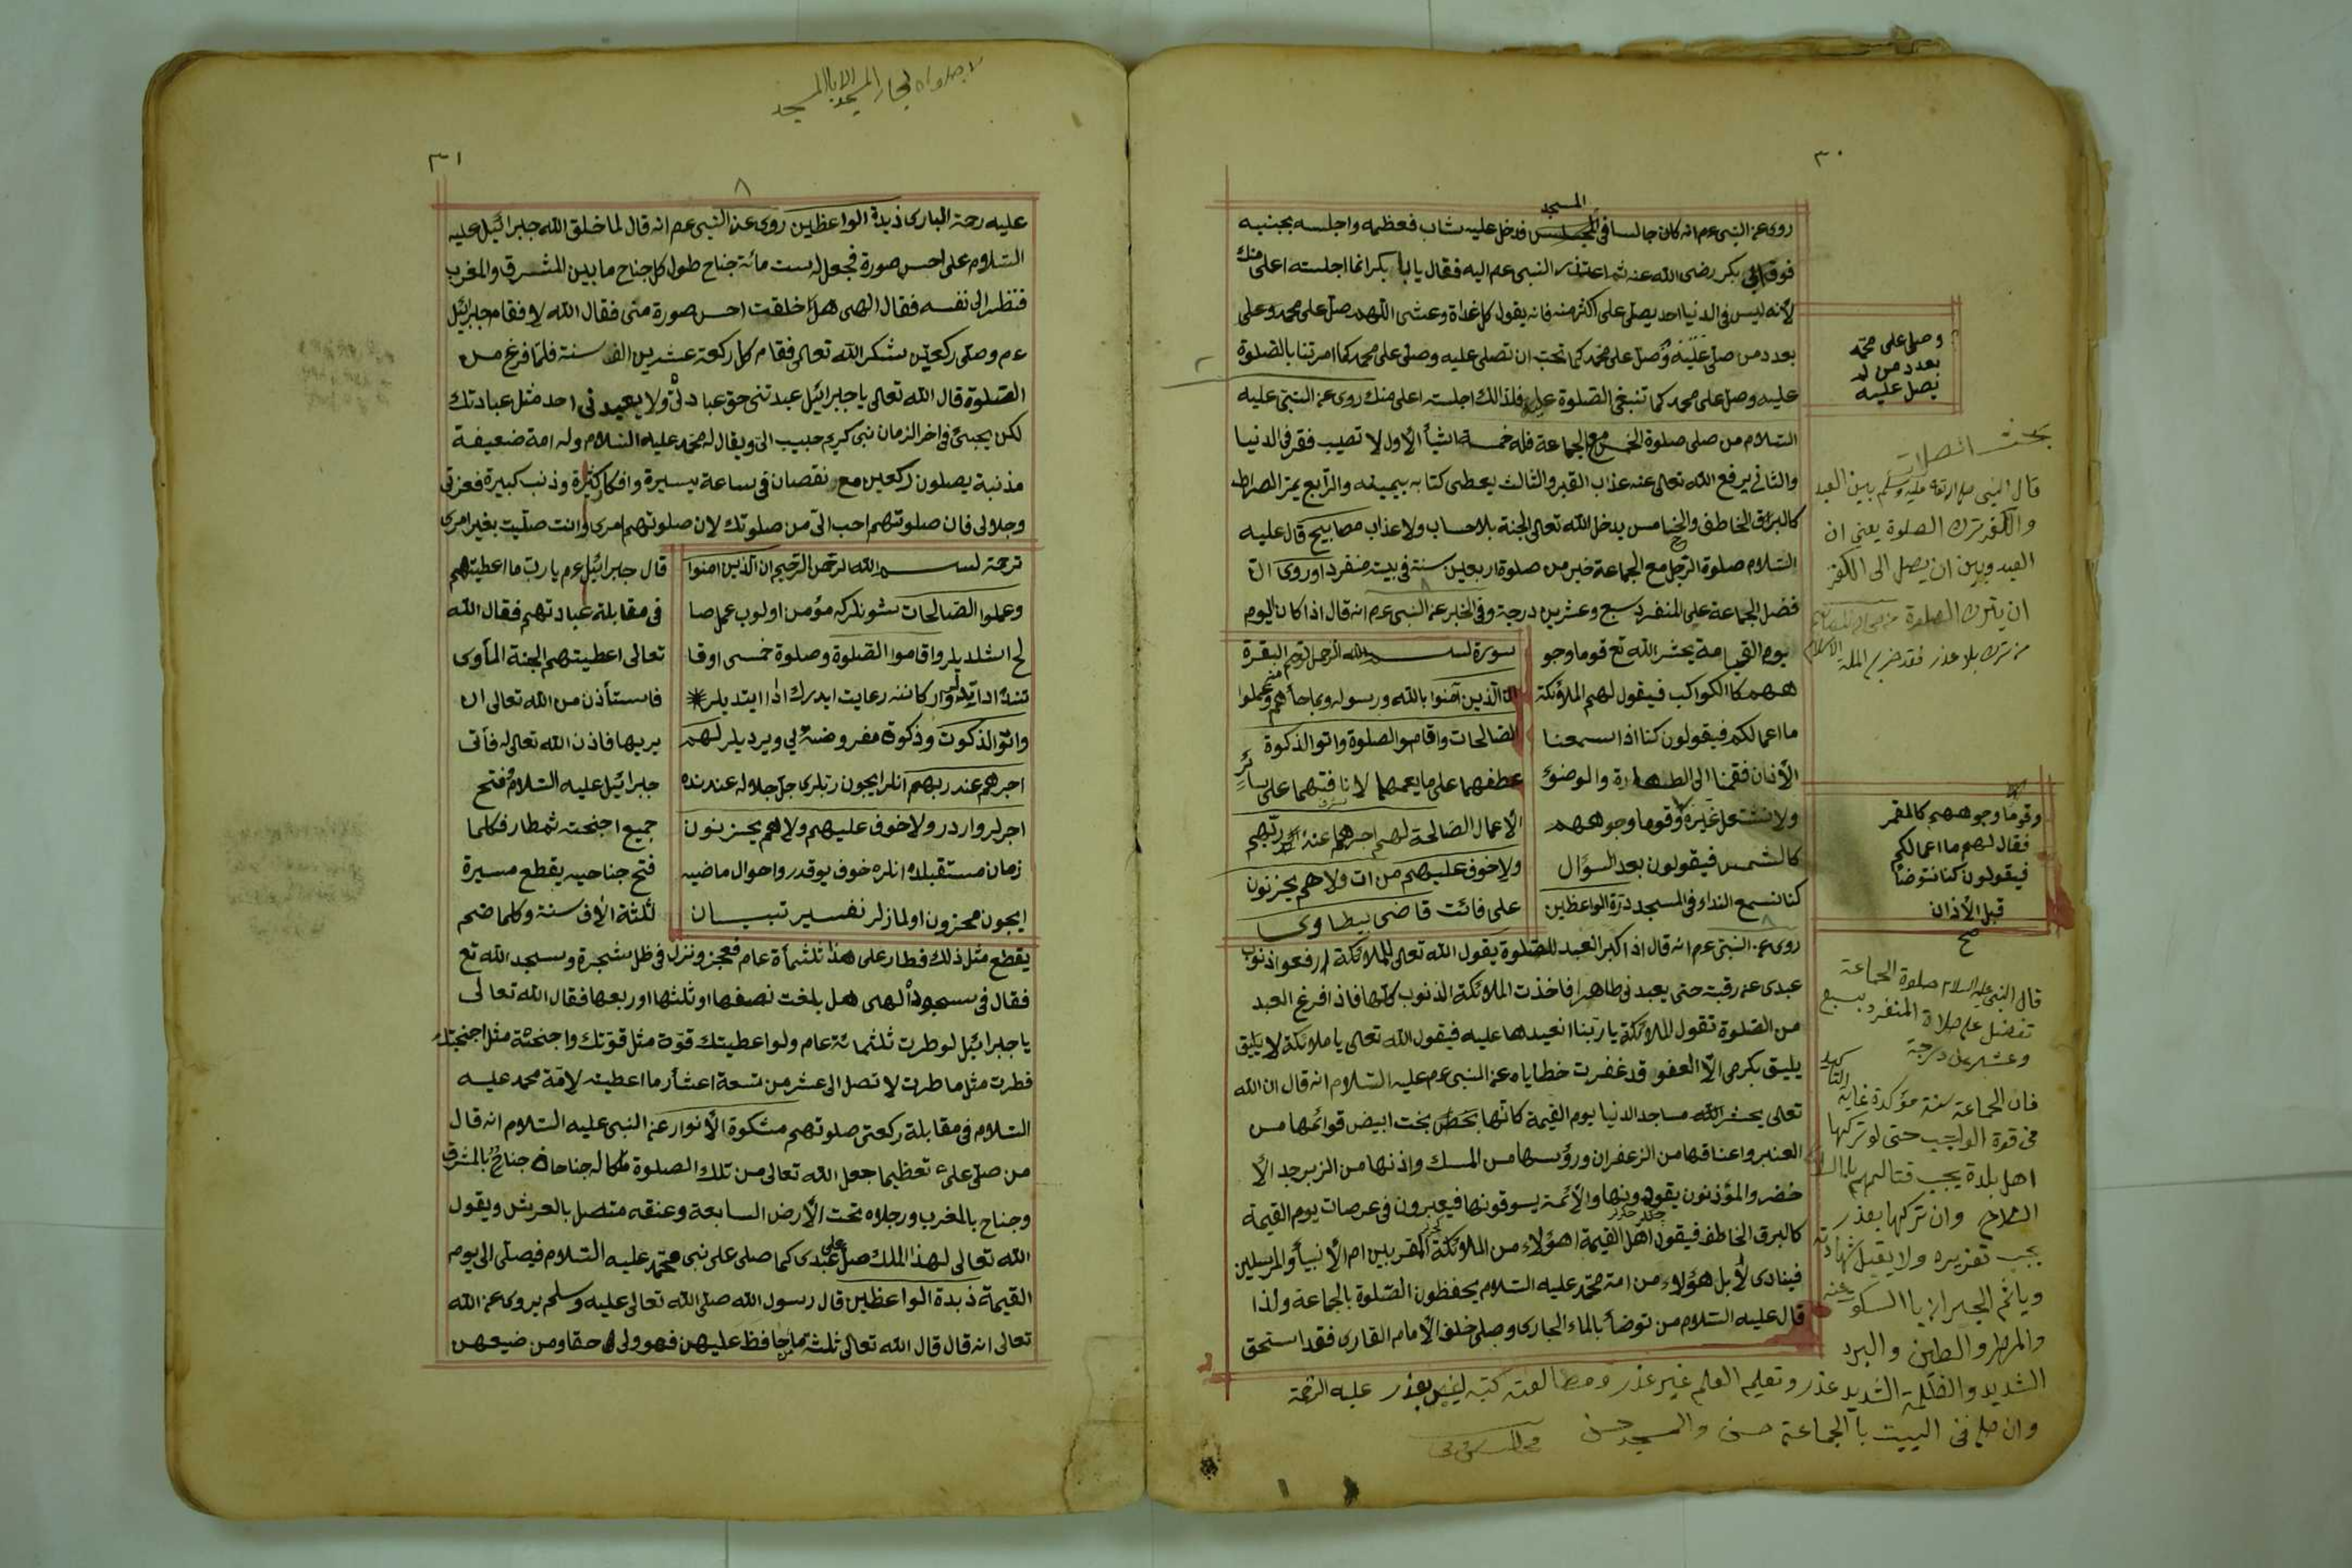 ٣٠
المسجد
روى عن النبى عم انه كان جالسا فى المجلس فدخل عليه شاب فعظمه واجلسه بجنبيه
فوق ابى بكر رضى الله عنه ثم اعتذر النبى عم اليه فقال يا ابا بكر انما اجلسته اعلى منك
لأنه ليس فى الدنيا احد يصلى على اكثر منه فانه يقول كل غداة وعشى اللهم صل على محمد وعلى
بعدد من صل عليه وصل على محمد كما تحب ان تصلى عليه وصلى على محمد كما امرتنا بالصلوة
عليه وصل على محمد كما تنبغى الصلوة عليه فلذالك اجلسته اعلى منك روى عن النبى عليه
السلام من صلى صلوة الخمس مع الجماعة فله خمسة اشيأ الأول لا تصيب فقر فى الدنيا
والثانى يرفع الله تعالى عنه عذاب القبر والثالث يعطى كتابه بيمينه والرابع يمر الصراط
كالبرق الخاطف والخامس يدخل الله تعالى الجنة بلا حساب ولا عذاب مصابيح قال عليه
السلام صلوة الرجل مع الجماعة خير من صلوة اربعين سنة فى بيت منفردا وروى ان
فضل الجماعة على المنفرد سبع وعشرين درجة وفى الخبر عن النبى عم انه قال اذا كان اليوم
يوم القيامة يحشر الله تع قوما وجو
ههم كا الكواكب فيقول لهم الملائكة
ما اعمالكم فيقولون كنا اذا سمعنا
الأذان فقمنا الى الطهارة والوضوء
ولا نشتغل غيره وقوما وجوههم
كالشمس فيقولون بعد السؤال
كنا نسمع النداء فى المسجد درة الواعظين
سورة بسم الله الرحمن الرحيم البقرة
ان الذين آمنوا بالله ورسوله وبما جأهم وعملوا
الصالحات واقاموا الصلوة واتو الذكوة
عطفهما على ما يعمهما لانافتهما على سائر
الاعمال الصالحة لهم اجرهم عند ربهم
ولا خوف عليهم من ات ولا هم يحزنون
على فائت قاضى بيطاوى
روى عن النبى عم انه قال اذ اكبر العبد للصلوة يقول الله تعالى للملائكة ارفعوا ذنوب
عبدى عن رقبته حتى يعبدنى طاهرا فاخذت الملائكة الذنوب كلها فاذ افرغ العبد
من الصلوة تقول الملائكة يا ربنا انعيدها عليه فيقول الله تعالى يا ملائكة لا يليق
يليق بكرمى الا العفو قد غفرت خطاياه عن النبى عم عليه السلام انه قال ان الله
تعالى يحشر الله مساجد الدنيا يوم القيمة كانها بخت ابيض قوائمها من
العنبر واعناقها من الزعفران ورؤسها من المسك واذنها من الزبرجد الأ
خضر والمؤذنون يقودونها والأئمة يسوقونها فيعبرون فى عرصات يوم القيمة
كالبرق الخاطف فيقول اهل القيمة اهؤلاء من الملائكة المقربين ام الأنبيأ والمرسلين
فينادى لأ بل هؤلاء من امة محمد عليه السلام يحفظون الصلوة بالجماعة ولذا
قال عليه السلام من توضأ بالماء الجارى وصلى خلف الأمام القارى فقد استحق
وصلى على محمد
بعدد من لم
يصل عليه
بحث
قال النبى صلى الله تعالى عليه وسلم بين العبد
والكفر ترك الصلوة يعنى ان
العبد وبين ان يصل الى الكفر
ان يترك الصلوة
من ترك بلا عذر فقد خرج من الملة الاسلام
وقوما وجوههم كالقمر
فقال لهم ما اعمالكم
فيقولون كنا نتوضأ
قبل الأذان
صح
قال النبى عليه السلام صلوة الجماعة
تفضل على صلاة المنفرد بسبع
وعشرين درجة
فان الجماعة سنة مؤكدة غاية التاكيد
فى قوة الواجب حتى لو تركها
اهل بلدة يجب قتالهم
السلاح وان تركها بعذر
يجب تعزيره ولا يقبل شهادته
ويأثم الجيران بالسكوت عنه
والمطر والطين والبرد
الشديد والظلمة الشديد عذر وتعليم العلم غير عذر ومطالعته كتبه ليس بعذر عليه الرحمة
وان صلى فى البيت باالجماعة حسن والمسجد حسن
٣١
لا صلواة لجار المسجد الا باالمسجد
عليه رحة البارى ذبدة الواعظين روى عن النبى عم انه قال لما خلق الله جبرائيل عليه
السلام على احسن صورة فجعل له ست مائة جناح طول كل جناح ما بين المشرق والمغرب
فنظر الى نفسه فقال الهى هل خلقت احسن صورة منى فقال الله لا فقام جبرائيل
عم وصلى ركعتين شكر الله تعالى فقام كل ركعة عشرين الف سنة فلما فرغ من
الصلوة قال الله تعالى يا جبرائيل عبدتنى حق عبادتى ولا يعبدنى احد مثل عبادتك
لكن يجيئ فى اخر الزمان نبى كريم حبيب الى ويقال له محمد عليه السلام وله امة ضعيفة
مذنبة يصلون ركعتين مع نقصان فى ساعة يسيرة وافكار كثيرة وذنب كبيرة فعزتى
وجلالى فان صلوتهم احب الى من صلوتك لان صلوتهم امرى وانت صليت بغير امرى
قال جبرائيل عم يا رب ما اعطيتهم
فى مقابلة عبادتهم فقال الله
تعالى اعطيتهم الجنة المأوى
فاستأذن من الله تعالى ان
يريها فاذن الله تعالى له فأتى
جبرائيل عليه السلام وفتح
جميع اجنحته ثم طار فكلما
فتح جناحيه يقطع مسيرة
ثلثة الاف سنة وكلما ضم
ترجمة بسم الله الرحمن الرحيم ان الذين امنوا
وعملوا الصالحات شونلركه مؤمن اولوب عمل صا
لح اشلديلر واقاموا الصلوة وصلوة خمسى اوقا
تنده اركاننه رعايت ايدرك ادا ايتديلر
واتو الذكوت وذكوة مفروضه لى ويرديلر لهم
اجرهم عند ربهم انلر ايجون ربلرى جل جلاله عندنده
اجرلر واردر ولا خوف عليهم ولا هم يحزنون
زمان مستقبلده انلره خوف يوقدر واحوال ماضيه
ايجون محزون اولمازلر تفسير تبيان
يقطع مثل ذلك فطار على هذا ثلثمأة عام فعجز ونزل فى ظل شجرة وسجد الله تع
فقال فى سجوده الهى هل بلغت نصفها او ثلثها او ربعها فقال الله تعالى
يا جبرائيل لو طرت ثلثمائة عام ولو اعطيتك قوة مثل قوتك واجنحة مثل اجنحتك
فطرت مثل ما طرت لا تصل الى عشر من تسعة اعشار ما اعطيته لأمة محمد عليه
السلام فى مقابلة ركعتى صلوتهم مشكوة الأنوار عن النبى عليه السلام انه قال
من صلى على تعظيما جعل الله تعالى من تلك الصلوة ملكا له جناحان جناح بالمشرق
وجناح بالمغرب ورجلاه تحت الأرض السابعة وعنقه متصل بالعرش ويقول
الله تعالى لهذا الملك صل على عبدى كما صلى على نبى محمد عليه السلام فيصلى الى يوم
القيمة ذبدة الواعظين قال رسول الله صلى الله تعالى عليه وسلم يروى عن الله
تعالى انه قال قال الله تعالى ثلثة من حافظ عليهن فهو ولى حقا ومن ضيعهن